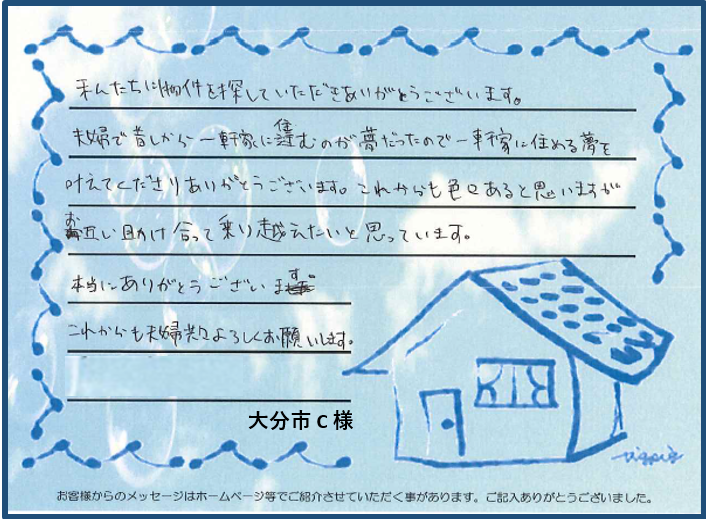 私たちに物件を探していただきありがとうございます。
夫婦で昔しから一軒家に住むのが夢だったので一軒家に住める夢を
叶えてくださりありがとうございます。これからも色々あると思いますが
お互い助け合って乗り越えたいと思っています。
本当にありがとうございます。
これからも夫婦共々よろしくお願いします。
大分市C様
お客様からのメッセージはホームページ等でご紹介させていただく事があります。ご記入ありがとうございました。